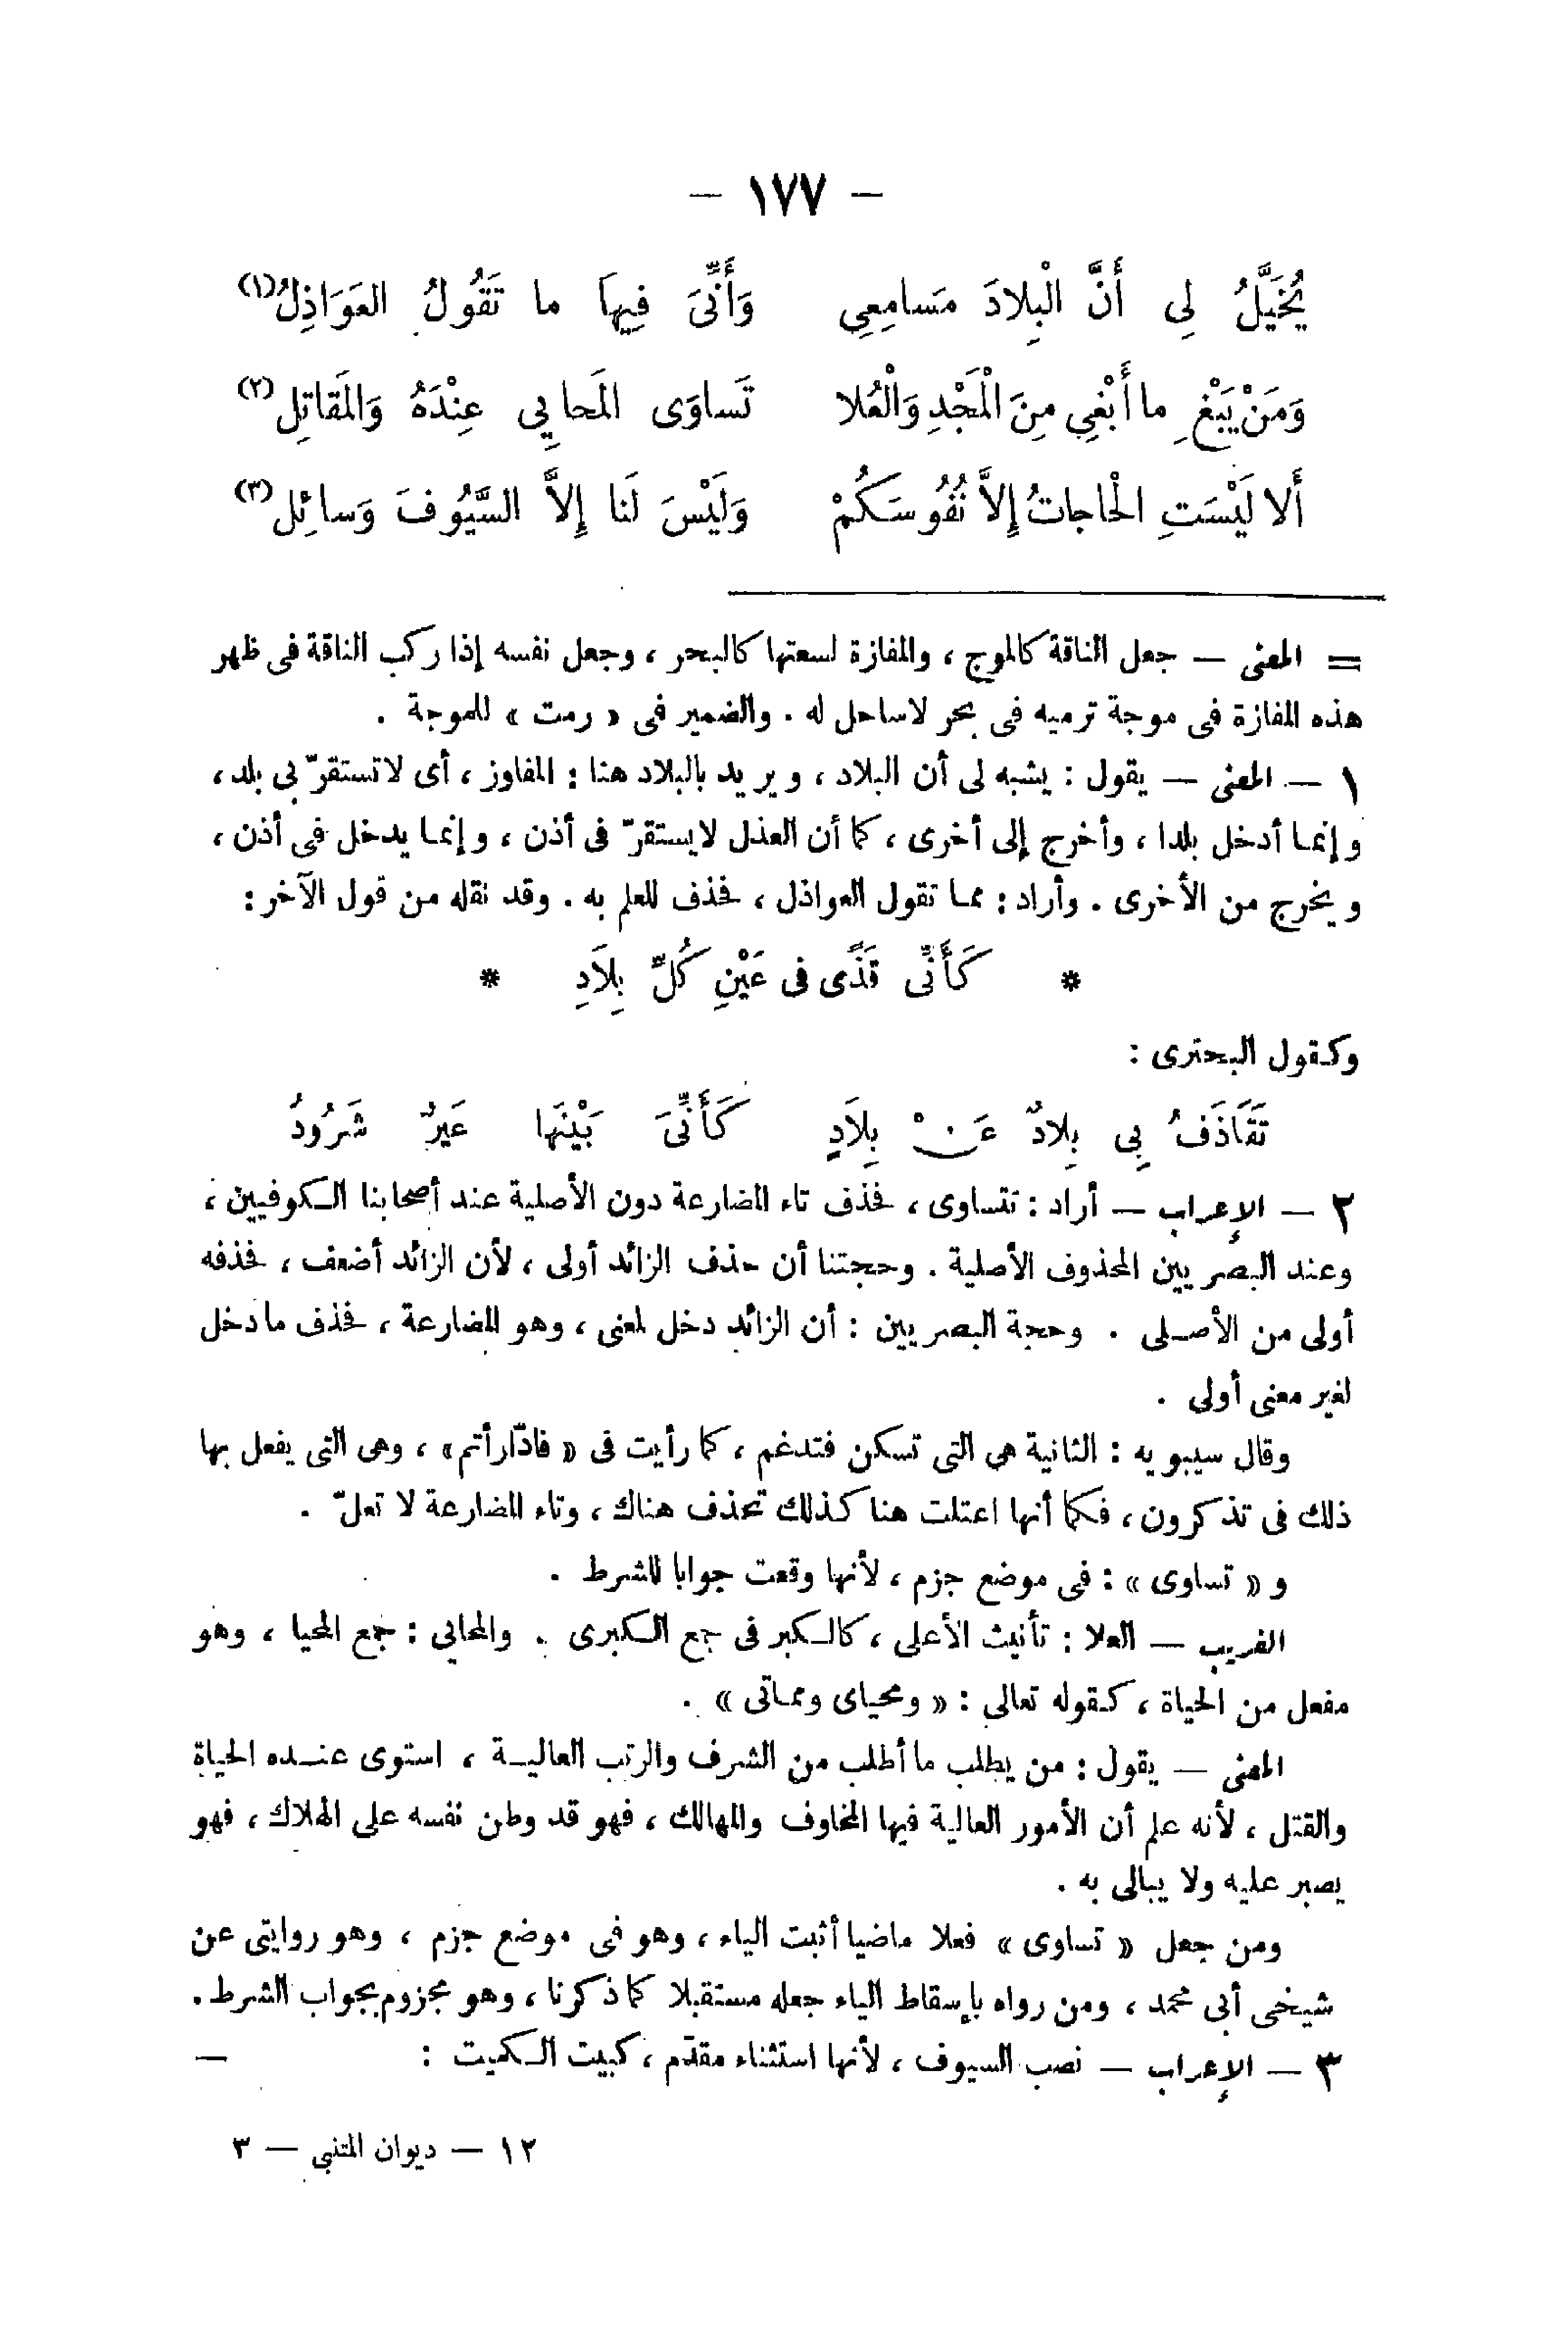 — ١٧٧ —
يُخَيَّلُ لِي أَنَّ الْبِلادَ مَسامِعِي وَأَنِّىَ فِيها ما تَقُولُ العَوَاذِلُ(١)
وَمَنْ يَبْغِ ما أَبْغِي مِنَ الْمَجْدِ وَالْعُلا تَساوَى المَحايِي عِنْدَهُ وَالمَقاتِل(٢)
أَلا لَيْسَتِ الْحاجاتُ إِلاَّ نُفُوسَكُمْ وَلَيْسَ لَنا إِلاَّ السُّيُوفَ وَسائِل(٣)
= المعنى — جعل الناقة كالموج ، والمفازة لسعتها كالبحر ، وجعل نفسه إذا ركب الناقة فى ظهر
هذه المفازة فى موجة ترميه فى بحر لاساحل له . والضمير فى « رمت » للموجة .
١ — المعنى — يقول : يشبه لى أن البلاد ، ويريد بالبلاد هنا : المفاوز ، أى لاتستقرّ بى بلد ،
وإنما أدخل بلدا ، وأخرج إلى أخرى ، كما أن العذل لايستقرّ فى أذن ، وإنما يدخل فى أذن ،
ويخرج من الأخرى . وأراد : مما تقول العواذل ، فحذف للعلم به . وقد نقله من قول الآخر :
* كَأَنِّى قَذًى فى عَيْنِ كُلِّ بِلاَدِ *
وكقول البحترى :
تَقَاذَفُ بِى بِلادٌ عَنْ بِلاَدٍ كَأَنِّىَ بَيْنَها عَيرٌ شَرُودُ
٢ — الإعراب — أراد : تتساوى ، فحذف تاء المضارعة دون الأصلية عند أصحابنا الكوفيين ،
وعند البصريين المحذوف الأصلية . وحجتنا أن حذف الزائد أولى ، لأن الزائد أضعف ، فحذفه
أولى من الأصلى . وحجة البصريين : أن الزائد دخل لمعنى ، وهو المضارعة ، فحذف مادخل
لغير معنى أولى .
وقال سيبويه : الثانية هى التى تسكن فتدغم ، كما رأيت فى « فادّارأتم» ، وهى التى يفعل بها
ذلك فى تذكرون ، فكما أنها اعتلت هنا كذلك تحذف هناك ، وتاء المضارعة لا تعلّ .
و « تساوى » : فى موضع جزم ، لأنها وقعت جوابا للشرط .
الغريب — العلا : تأنيث الأعلى ، كالكبر فى جمع الكبرى . والمحايى : جمع المحيا ، وهو
مفعل من الحياة ، كقوله تعالى : « ومحياى ومماتى » .
المعنى — يقول : من يطلب ما أطلب من الشرف والرتب العالية ، استوى عنده الحياة
والقتل ، لأنه علم أن الأمور العالية فيها المخاوف والمهالك ، فهو قد وطن نفسه على الهلاك ، فهو
يصبر عليه ولا يبالى به .
ومن جعل « تساوى » فعلا ماضيا أثبت الياء ، وهو فى موضع جزم ، وهو روايتى عن
شيخى أبى محمد ، ومن رواه بإسقاط الياء جعله مستقبلا كما ذكرنا ، وهو مجزوم بجواب الشرط .
٣ — الإعراب — نصب السيوف ، لأنها استثناء مقدّم ، كبيت الكميت : —
١٢ — ديوان المتنبى — ٣